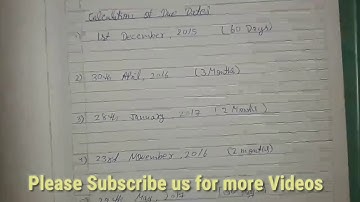 Calculation of Due Dates
1) 1st December, 2015 (60 Days)
2) 30th April, 2016 (3 Months)
3) 28th January, 2017 (2 Months)
4) 23rd November, 2016 (2 months)
Please Subscribe us for more Videos